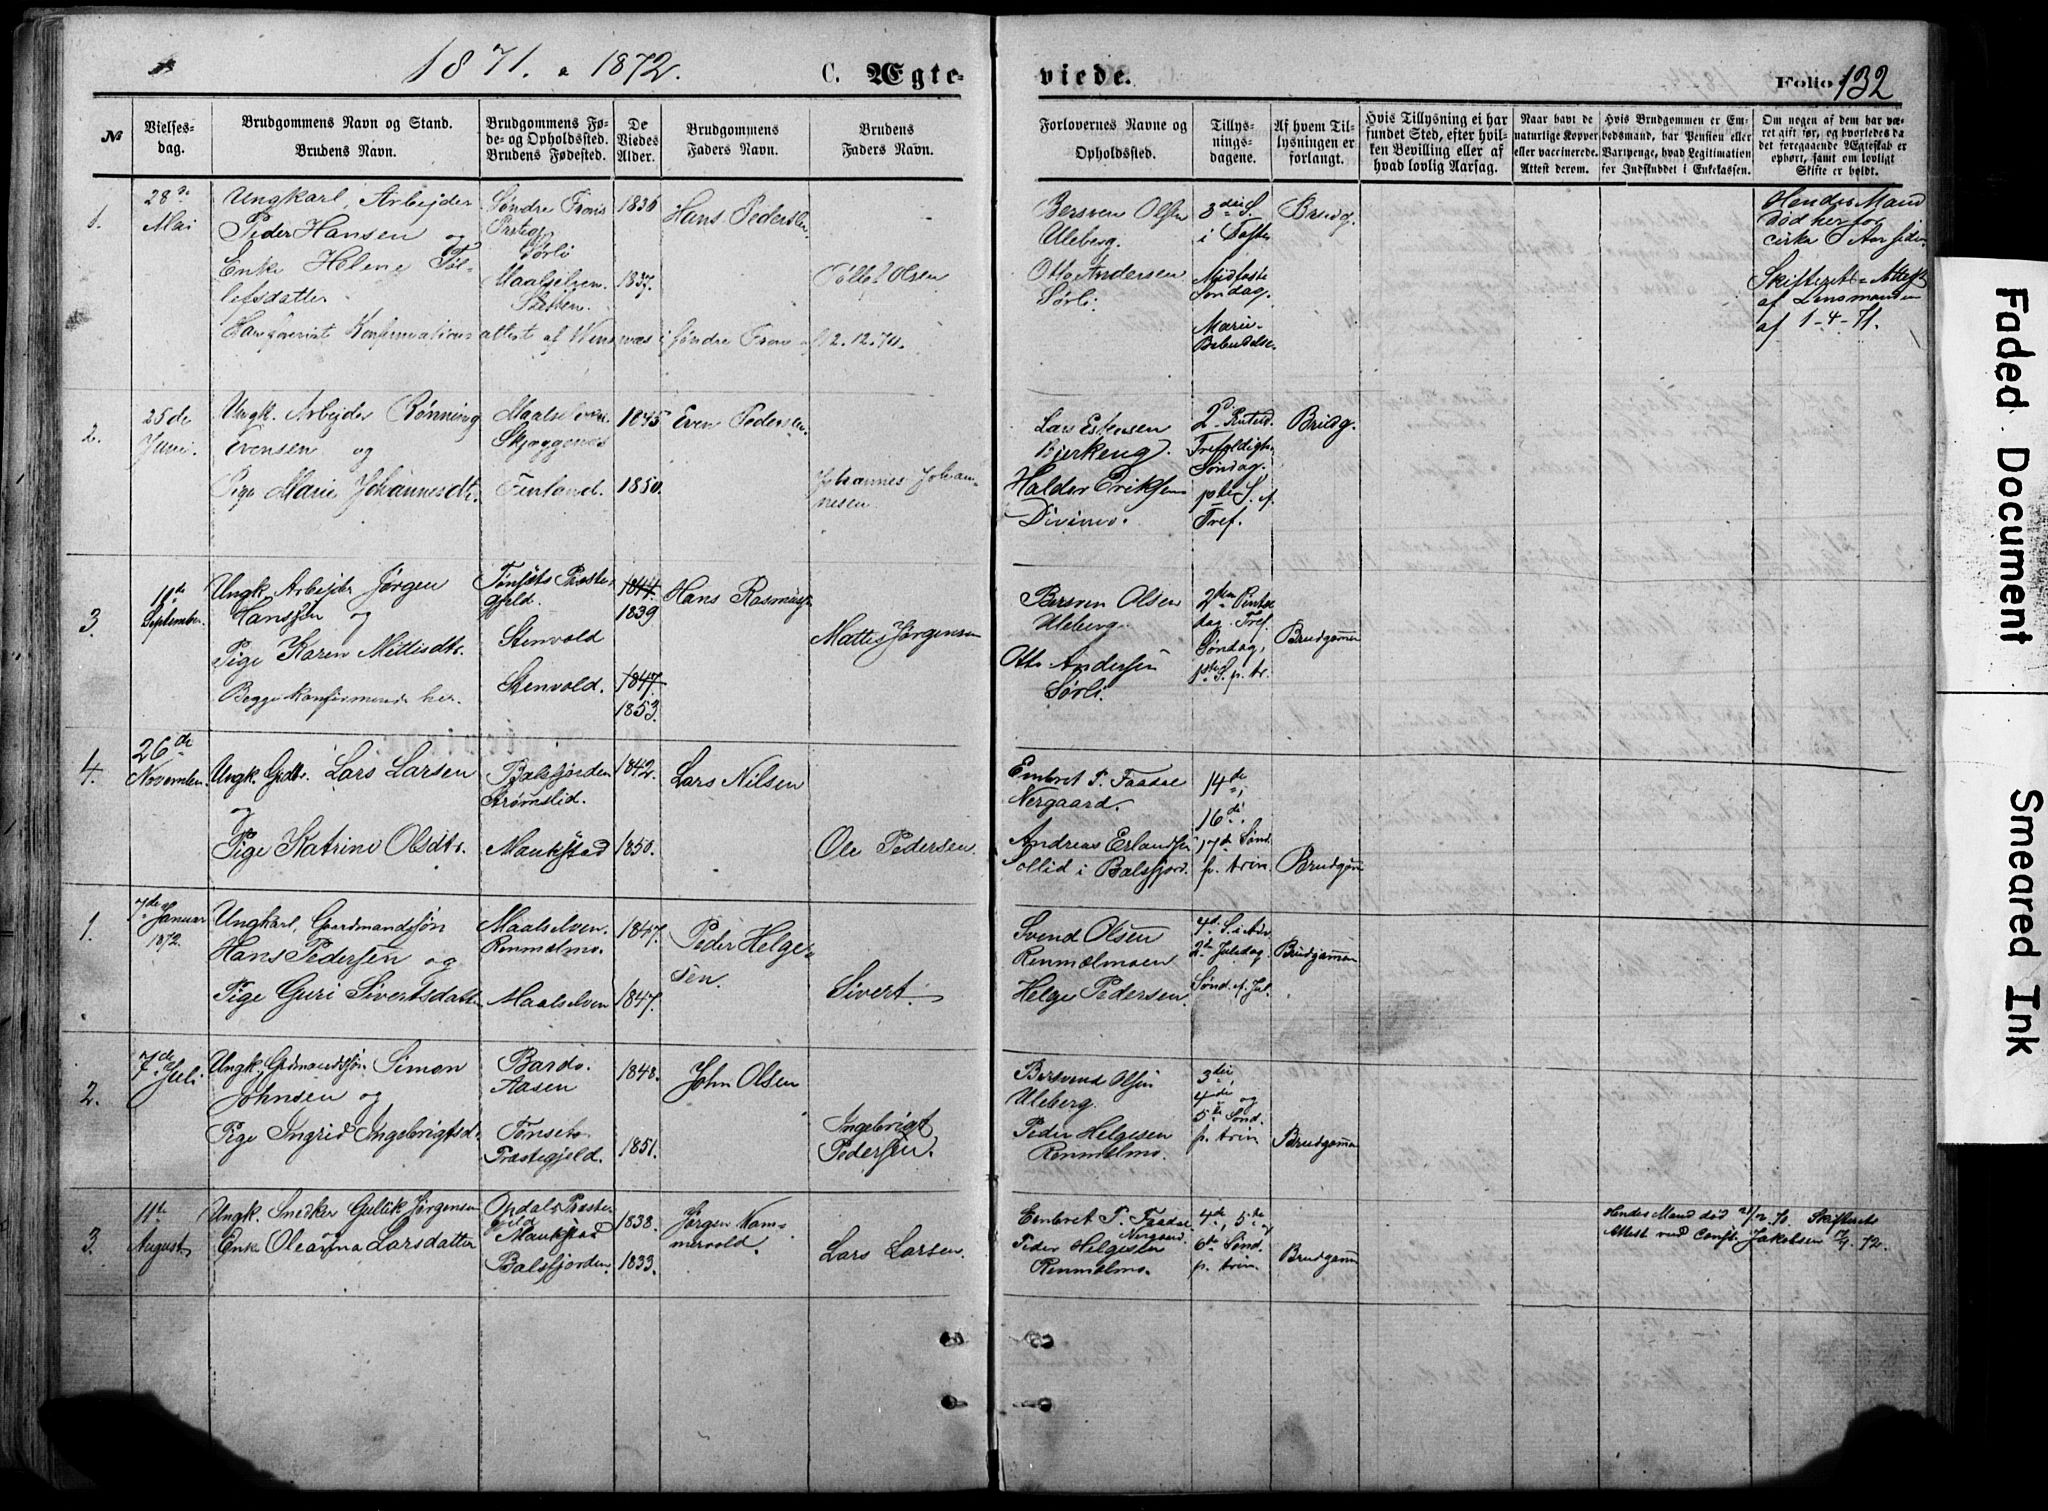 1871. 1872.
C. Ægteviede.
Folio 132
№
Vielses-
dag.
Brudgommens Navn og Stand.
Brudens Navn.
Brudgommens Fø-
de- og Opholdssted.
Brudens Fødested.
De
Viedes
Alder.
Brudgommens
Faders Navn.
Brudens
Faders Navn.
Forlovernes Navne og
Opholdssted.
Tillys-
nings-
dagene.
Af hvem Til-
lysningen er
forlangt.
Hvis Tillysning ei har
fundet Sted, efter hvil-
ken Bevilling eller af
hvad lovlig Aarsag.
Naar havt de
naturlige Kopper
eller vaccinerede.
Attest derom.
Hvis Brudgommen er Em-
bedsmand, har Pension eller
Vartpenge, hvad Legitimation
for Indskuddet i Enkekassen.
Om nogen af dem har væ-
ret gift før, og hvorledes da
det foregaaende Ægteskab er
ophørt, samt om lovligt
Skifte er holdt.
1.
28de
Mai
Ungkarl, Arbejder
Peder Hansen og
Enke Helene Töl-
lefsdatter
Søndre Frons
Prstgj
Sørli
Maalselven
1836
1837.
Hans Pedersen
Tøllef Olsen
Bersven Olsen
Uleberg.
Otto Andersen
Sørli.
3die S.
i Faste
Midfaste
Søndag.
Mariæ
Bebudelse.
Brudg.
Hendes Mand
død her for
cirka 6 Aar siden
Skifteret-Attest
af Lensmanden
af 1-4-71.
2.
25de
Juni.
Ungk. Arbejder Rønning
Evensen og
Pige Marie Johannesdt.
Maalselven
Skjæggenes
Finland.
1845
1850.
Even Pedersen
Johannes Johan-
nesen
Lars Estensen
Bjerkeng.
Haldor Eriksen
Divimo.
2d Pintsd.
Trefoldigh.
Søndag.
1ste S. e.
Tref.
Brudg.
3.
11te
September.
Ungk. Arbejder Jørgen
Hanssen og
Pige Karen Mittisdt.
Begge konfirmerede her.
Tønsets Præste-
gjeld.
Stenvold
Stenvold.
1844.
1839
1847.
1853.
Hans Rasmusen
Mattis Jørgensen
Bersven Olsen
Uleberg.
Otto Andersen
Sørli.
2den Pintse
dag. Tref.
Søndag,
1ste S. p. tr.
Brudgommen
4.
26de
November
Ungk. Grdbr. Lars Larsen
og
Pige Katrine Olsdt.
Balsfjorden
Strømslid.
Maukstad
1842.
1850.
Lars Nilsen
Ole Pedersen.
Embret P. Faadse
Nergaard.
Andreas Erlandsen
Sollid i Balsfjord.
14de,
16de
17de Sønd.
p. trin.
Brudgom
1.
7de Januar
1872.
Ungkarl, Gaardmandssøn
Hans Pedersen og
Pige Guri Sivertsdatter
Maalselven
Renmælmo.
Maalselven
1847.
1847.
Peder Helge-
sen.
Sivert
Svend Olsen
Renmælmoen
Helge Pedersen.
4d. S. i Adv.
2d Juledag
Sønd. e. Jul.
Brudgommen
2.
7de Juli
Ungk. Grdmandssøn. Simon
Johnsen og
Pige Ingrid Ingebrigtsd.
Bardo.
Aasen
Tønsets
Præstegjeld.
1848.
1851.
John Olsen
Ingebrigt
Pedersen.
Bersvend Olsen
Uleberg.
Peder Helgesen
Renmælmo.
3die,
4de og
5te Sønd.
p. trin
Brudgommen
3.
11te
August
Ungk. Snedker Gullik Jørgensen
Enke Oleanna Larsdatter
Opdals Præste-
gjeld
Maukstad
Balsfjorden.
1838.
1833.
Jørgen Ham-
mervold.
Lars Larsen.
Embret P. Faadse
Nergaard.
Peder Helgesen
Renmælmo.
4de, 5te og
6te Sønd.
p. trin.
Brudgom
Hendes Mand død Skifterets
Attest ved Const. Jakobsen 72.
Faded Document
Smeared Ink